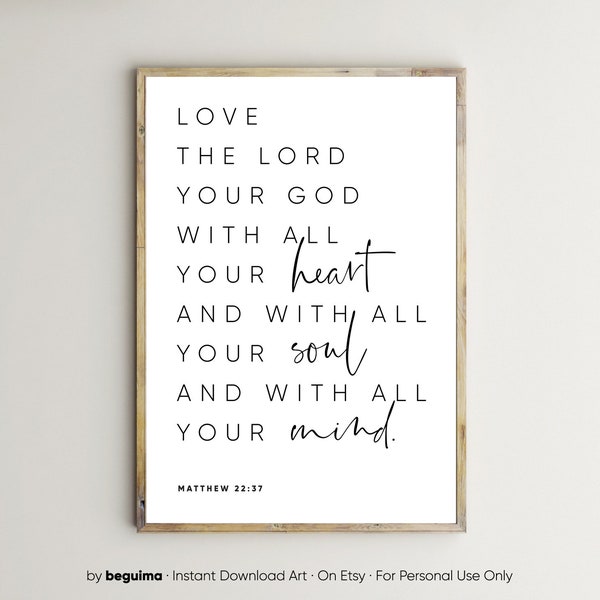 LOVE
THE LORD
YOUR GOD
WITH ALL
YOUR heart
AND WITH ALL
YOUR soul
AND WITH ALL
YOUR mind.
MATTHEW 22:37
by beguima · Instant Download Art · On Etsy · For Personal Use Only